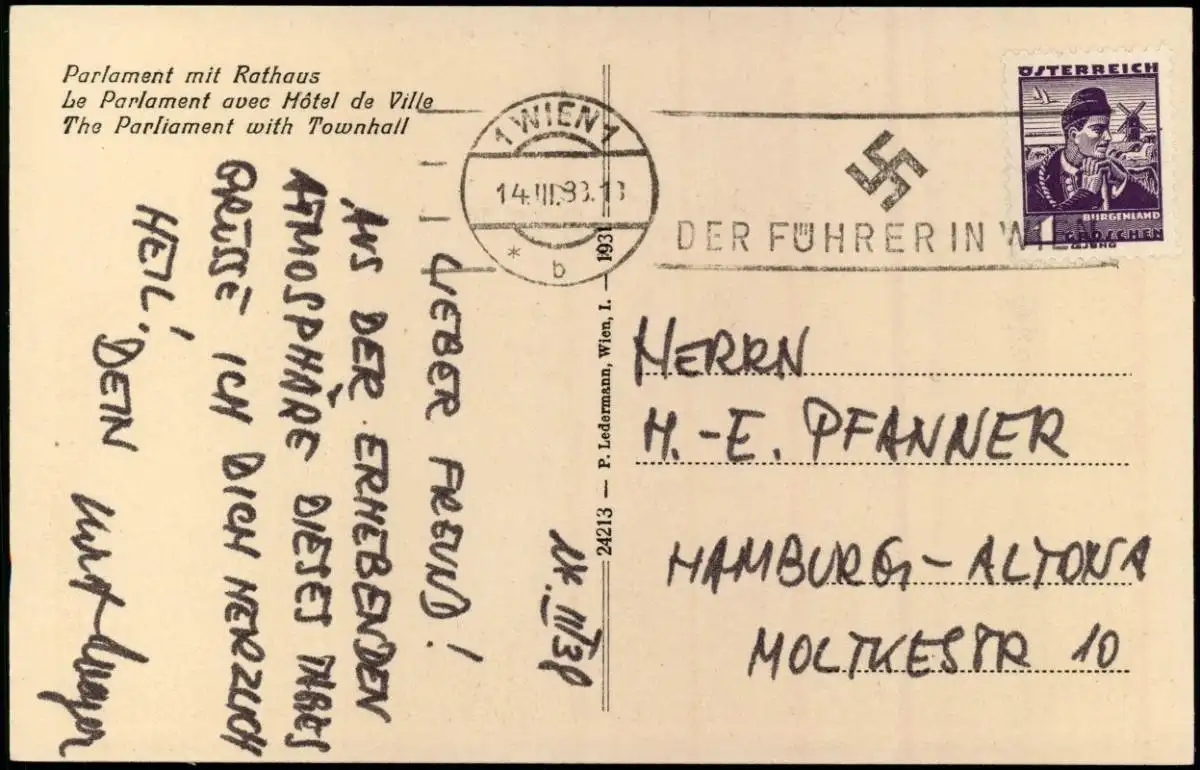 Parlament mit Rathaus
Le Parlament avec Hôtel de Ville
The Parliament with Townhall
1 WIEN 1
14.III.38.13
* b
DER FÜHRER IN WIEN
ÖSTERREICH
BURGENLAND
1 GROSCHEN
24213 — P. Ledermann, Wien, I. — 1931
14.III38
LIEBER FREUND!
AUS DER ERHEBENDEN
ATMOSPHÄRE DIESES TAGES
GRÜSSE ICH DICH HERZLICH
HEIL! DEIN
HERRN
H.-E. PFANNER
HAMBURG-ALTONA
MOLTKESTR 10